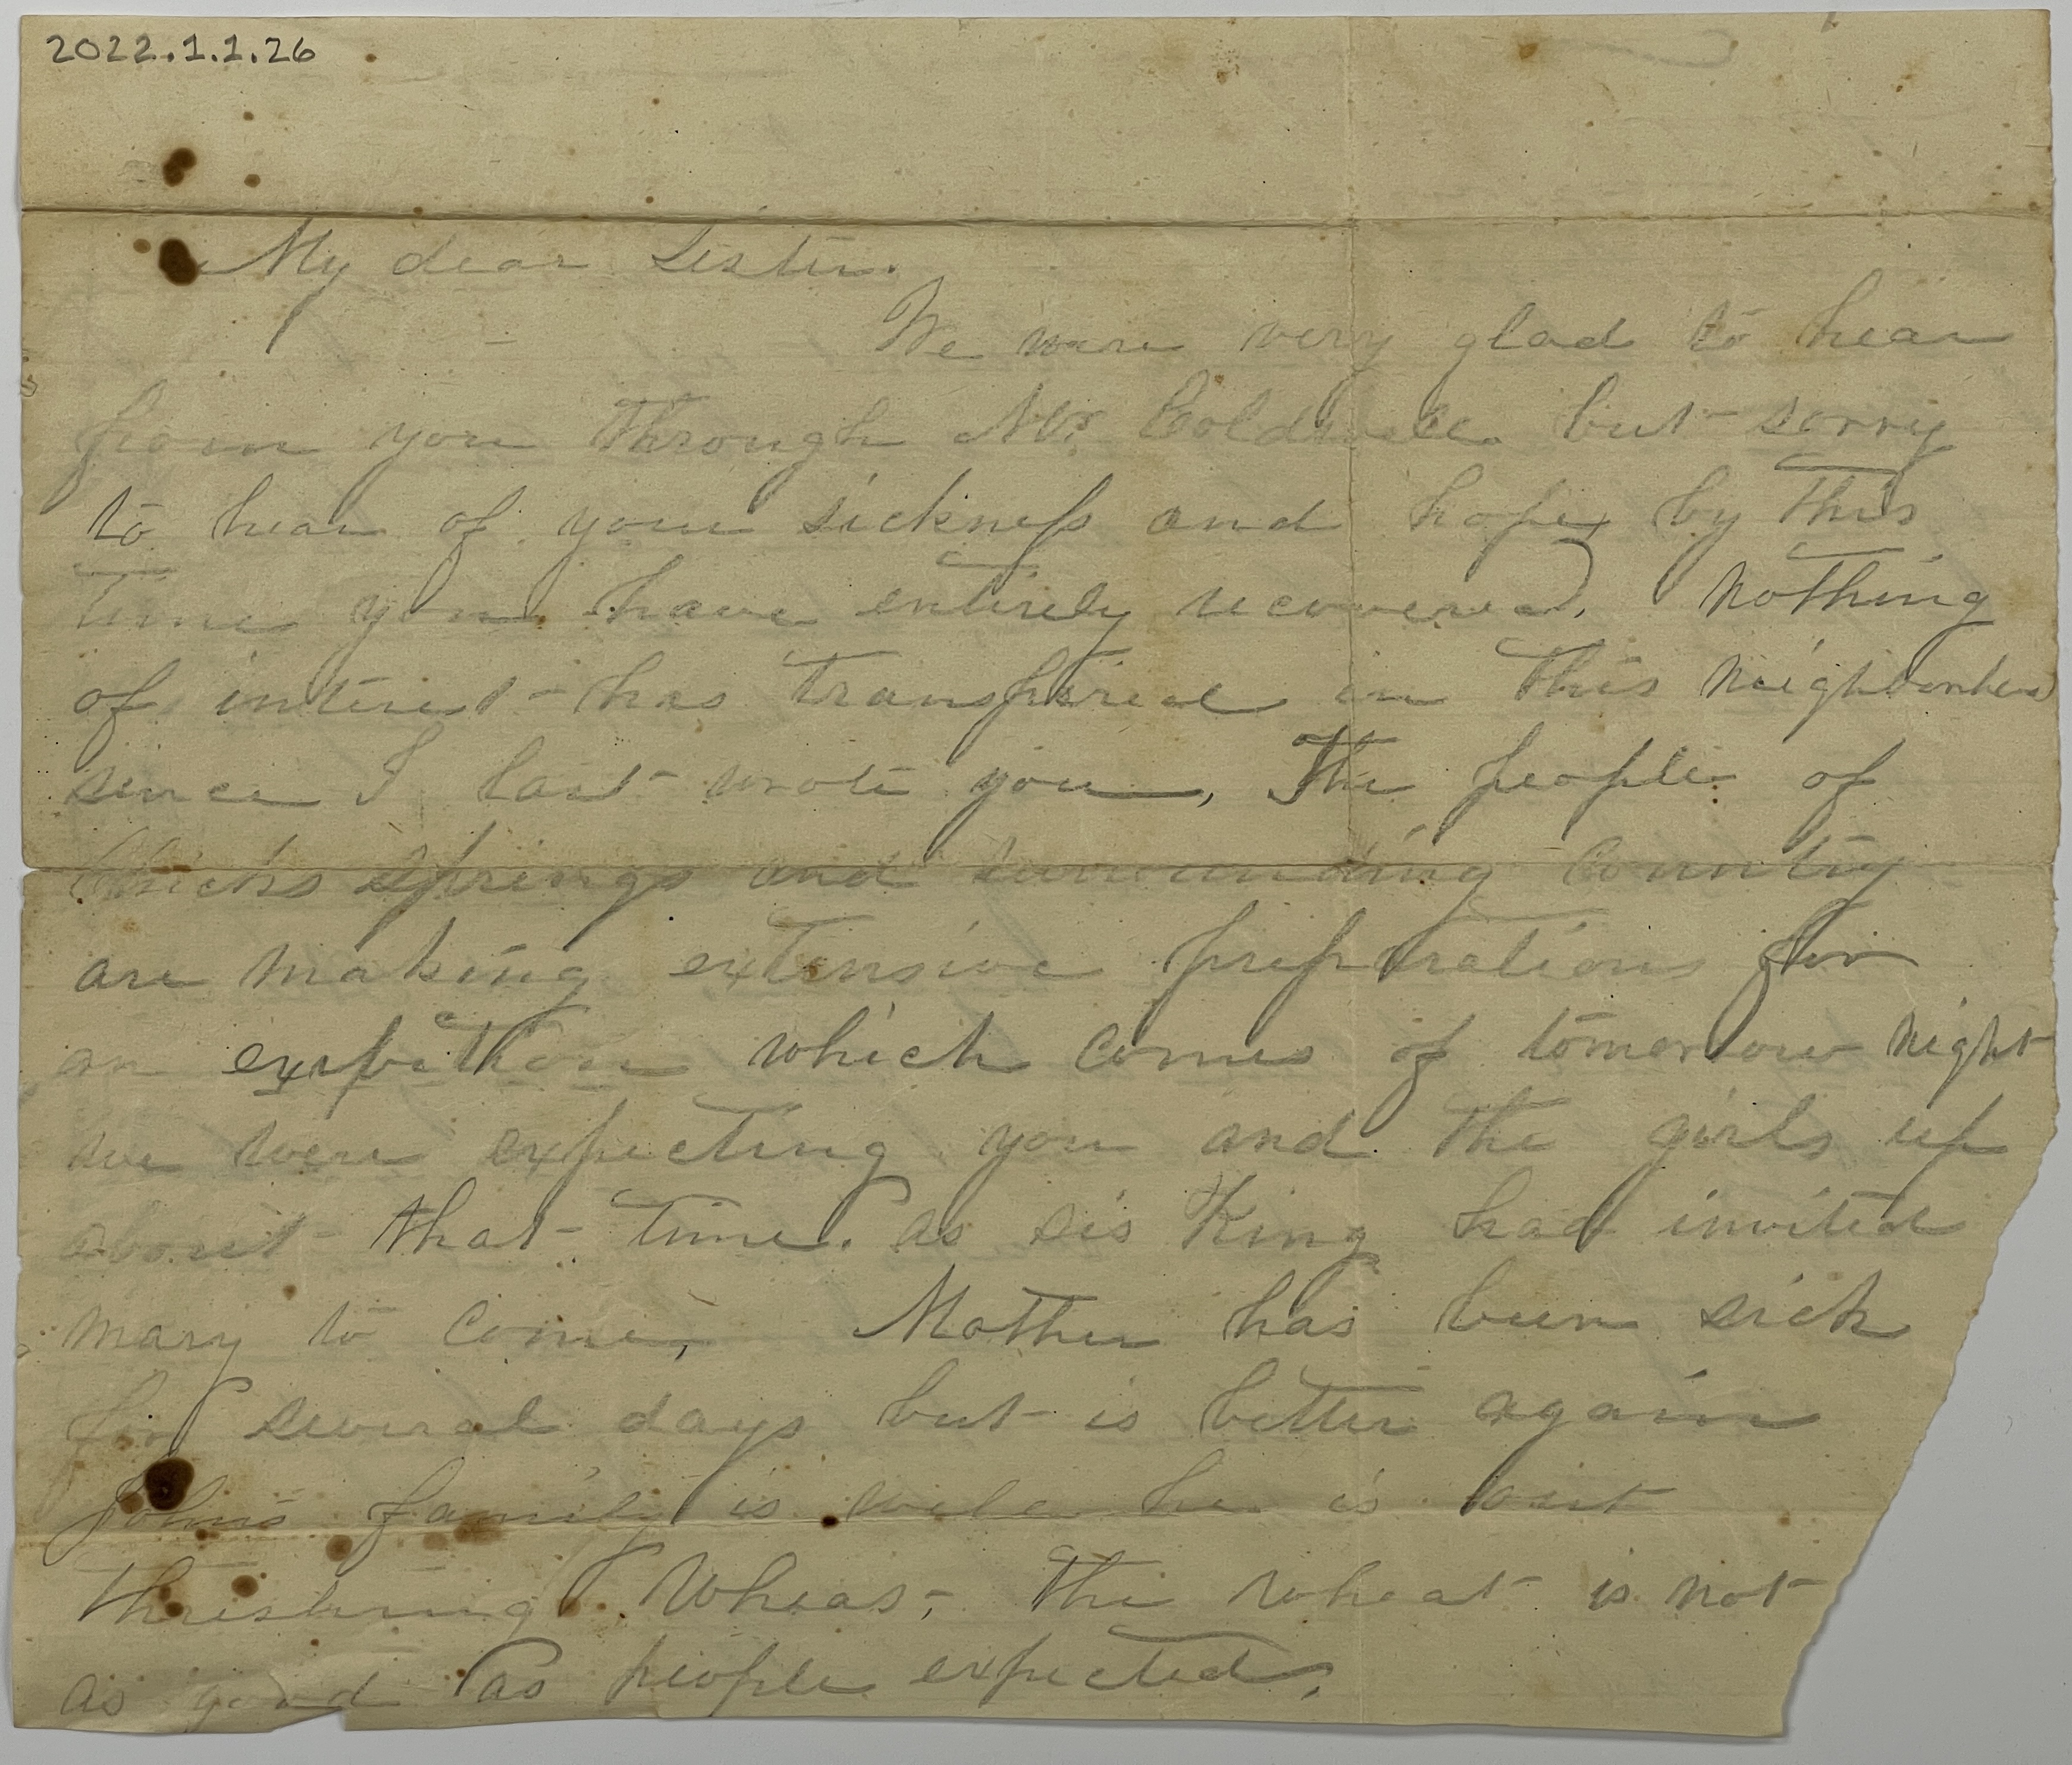 2022.1.1.26
My dear Sister.
We were very glad to hear
from you through Mr. Coldwell but sorry
to hear of your sickness and hope by this
time you have entirely recovered. Nothing
of interest has transpired in this neighborhood
since I last wrote you, The people of
Chicks Springs and surrounding Country
are making extensive preprations for
an which comes of tomorrow night
we were expecting you and the girls up
about that time. as sis King had invited
Mary to come, Mother has been sick
for several days but is better again
Johns family is well he is out
threshing Wheat, The wheat is not
as good as people expected,